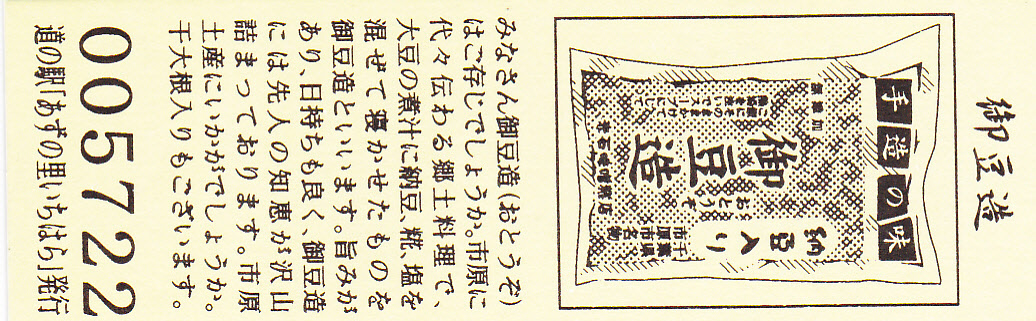 御豆造
手造の味
無添加
御豆造
おとうぞ
納豆入り
みなさん御豆造(おとうぞ)
はご存じでしょうか。市原に
代々伝わる郷土料理で、
大豆の煮汁に納豆、糀、塩を
混ぜて寝かせたものを
御豆造といいます。旨みが
あり、日持ちも良く、御豆造
には先人の知恵が沢山
詰まっております。市原
土産にいかがでしょうか。
干大根入りもございます。
005722
道の駅「あずの里いちはら」発行